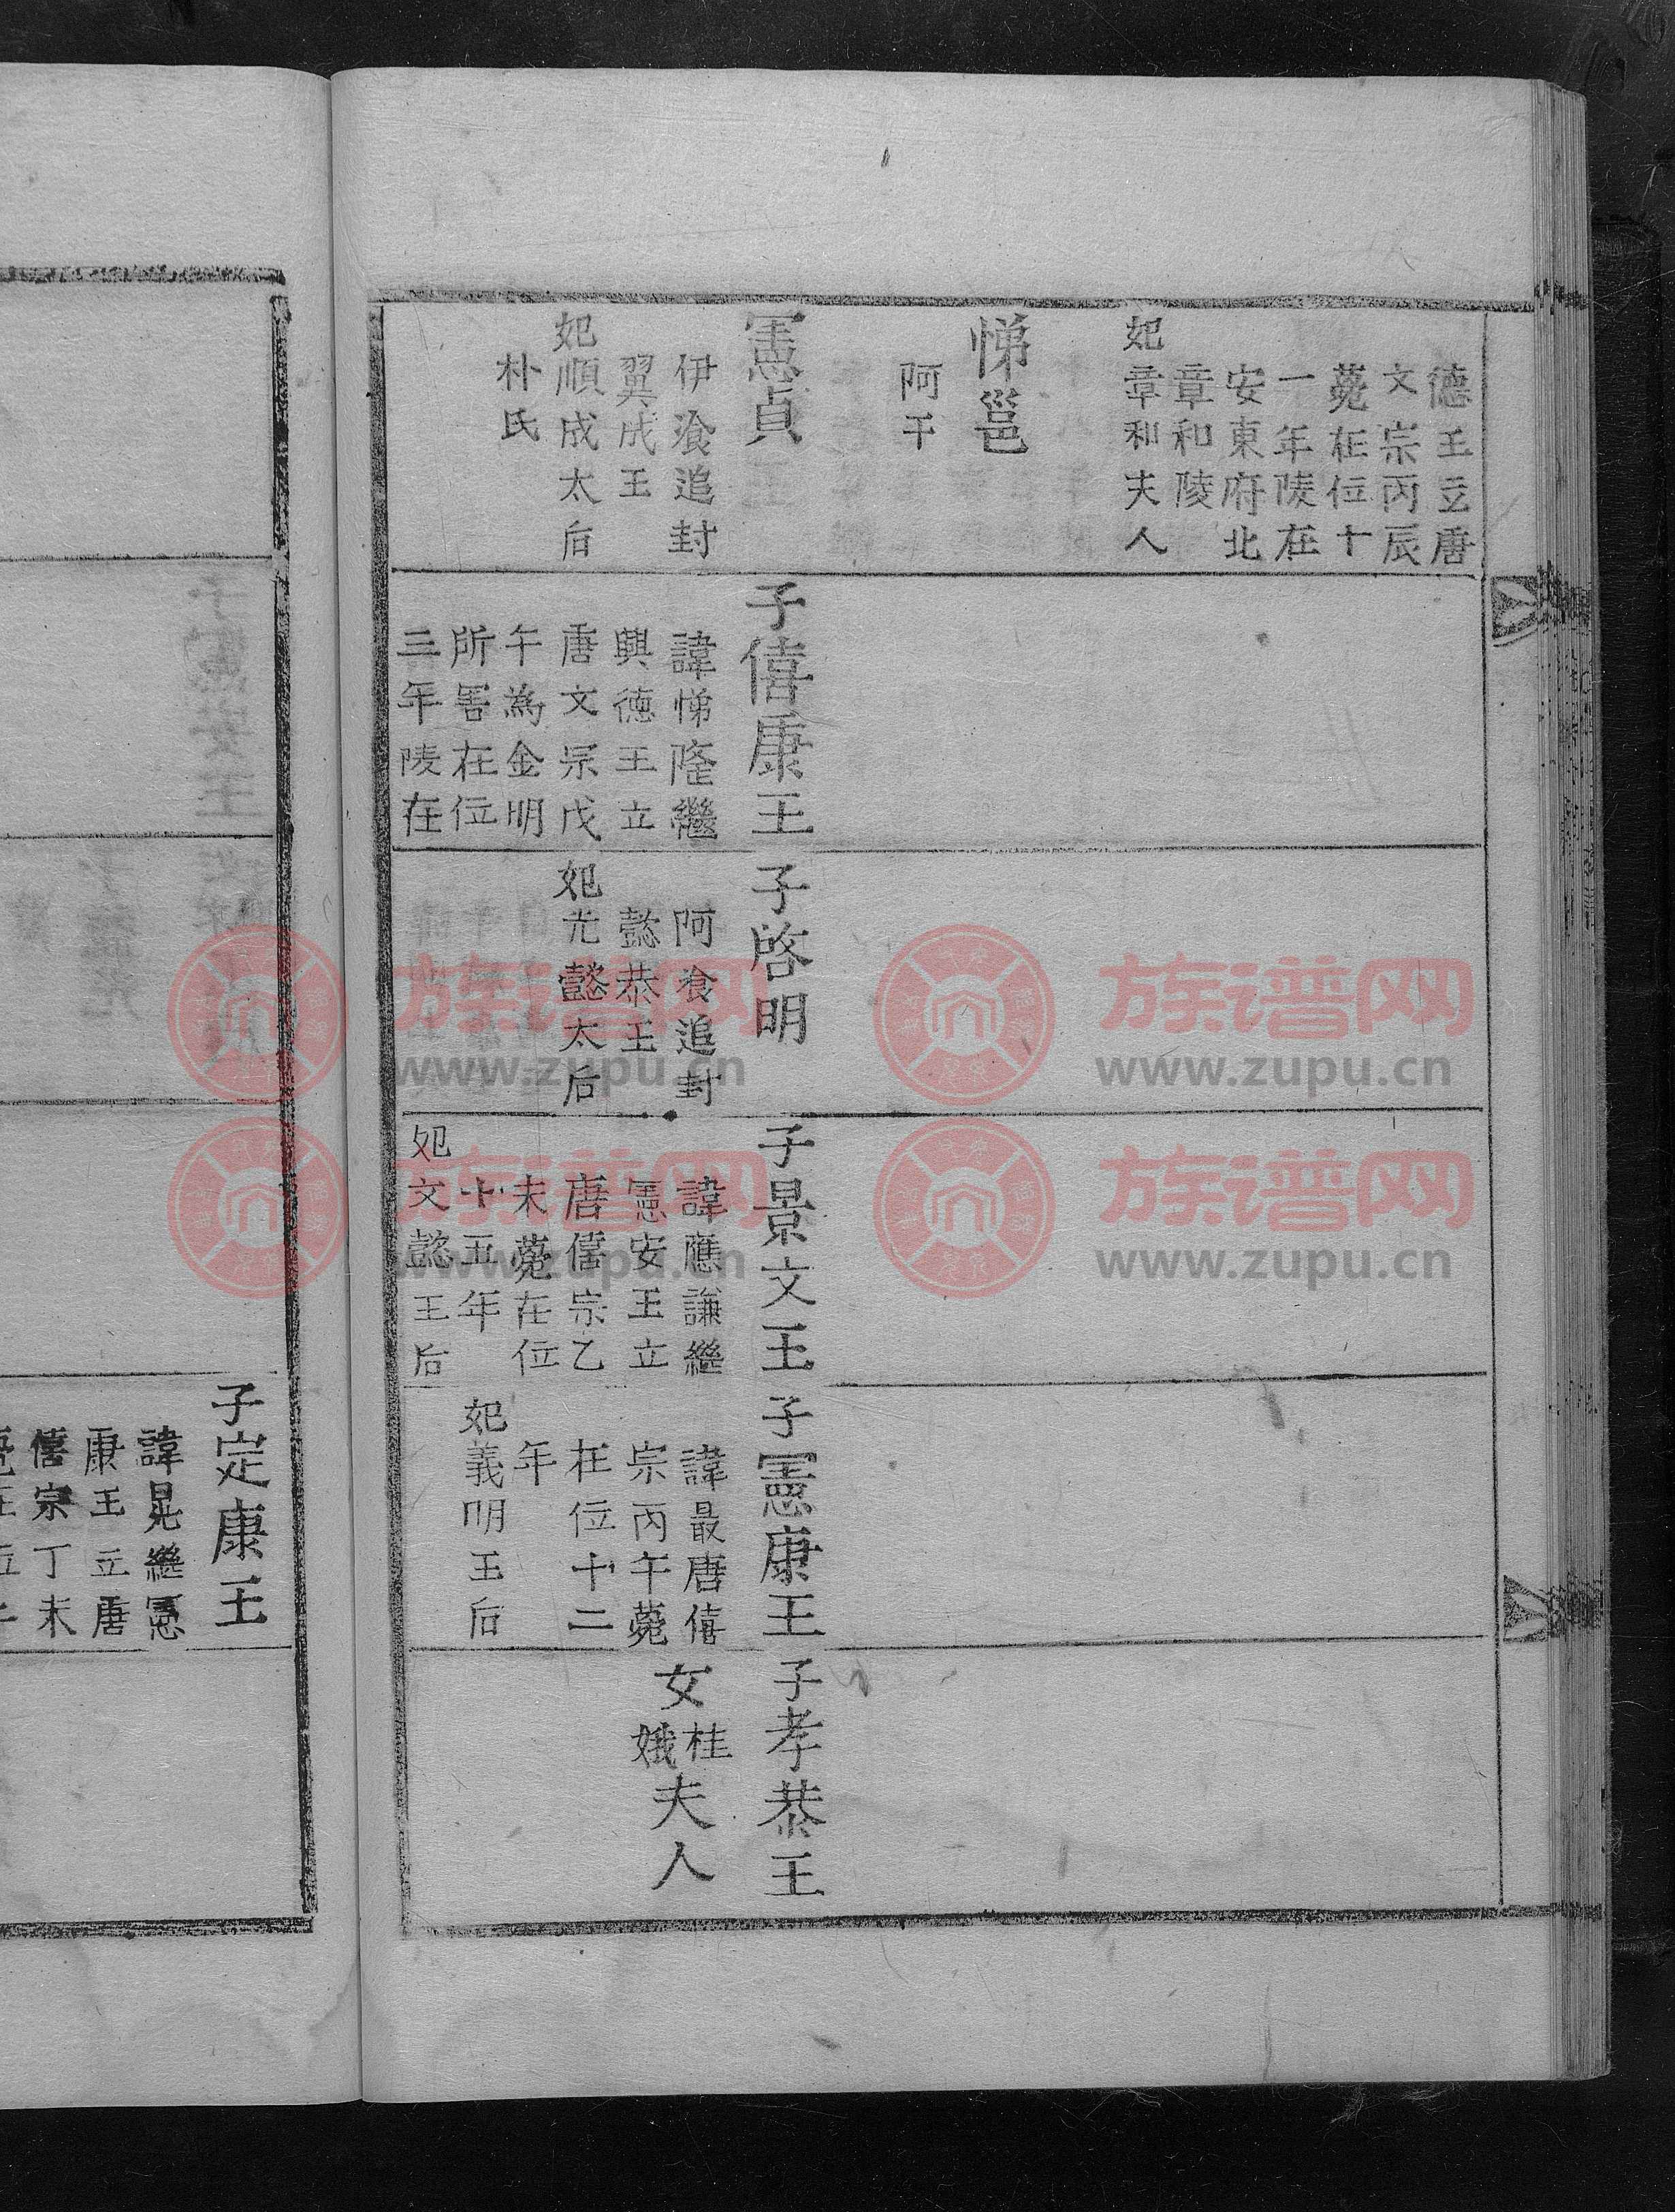 德王立唐
文宗丙辰
薨在位十
一年陵在
安東府北
章和陵
妃章和夫人
悌邕
阿干
憲貞
伊飡追封
翼成王
妃順成太后
朴氏
子僖康王
諱悌隆繼
興德王立
唐文宗戊
午為金明
所害在位
三年陵在
子啓明
阿飡追封
懿恭王
妃光懿太后
子景文王
諱應謙繼
憲安王立
唐僖宗乙
未薨在位
十五年
妃文懿王后
子憲康王
諱最唐僖
宗丙午薨
在位十二
年
妃義明王后
子孝恭王
女桂娥夫人
子定康王
諱晃繼憲
康王立唐
僖宗丁未
族谱网
www.zupu.cn
族谱网
www.zupu.cn
族谱网
www.zupu.cn
族谱网
www.zupu.cn